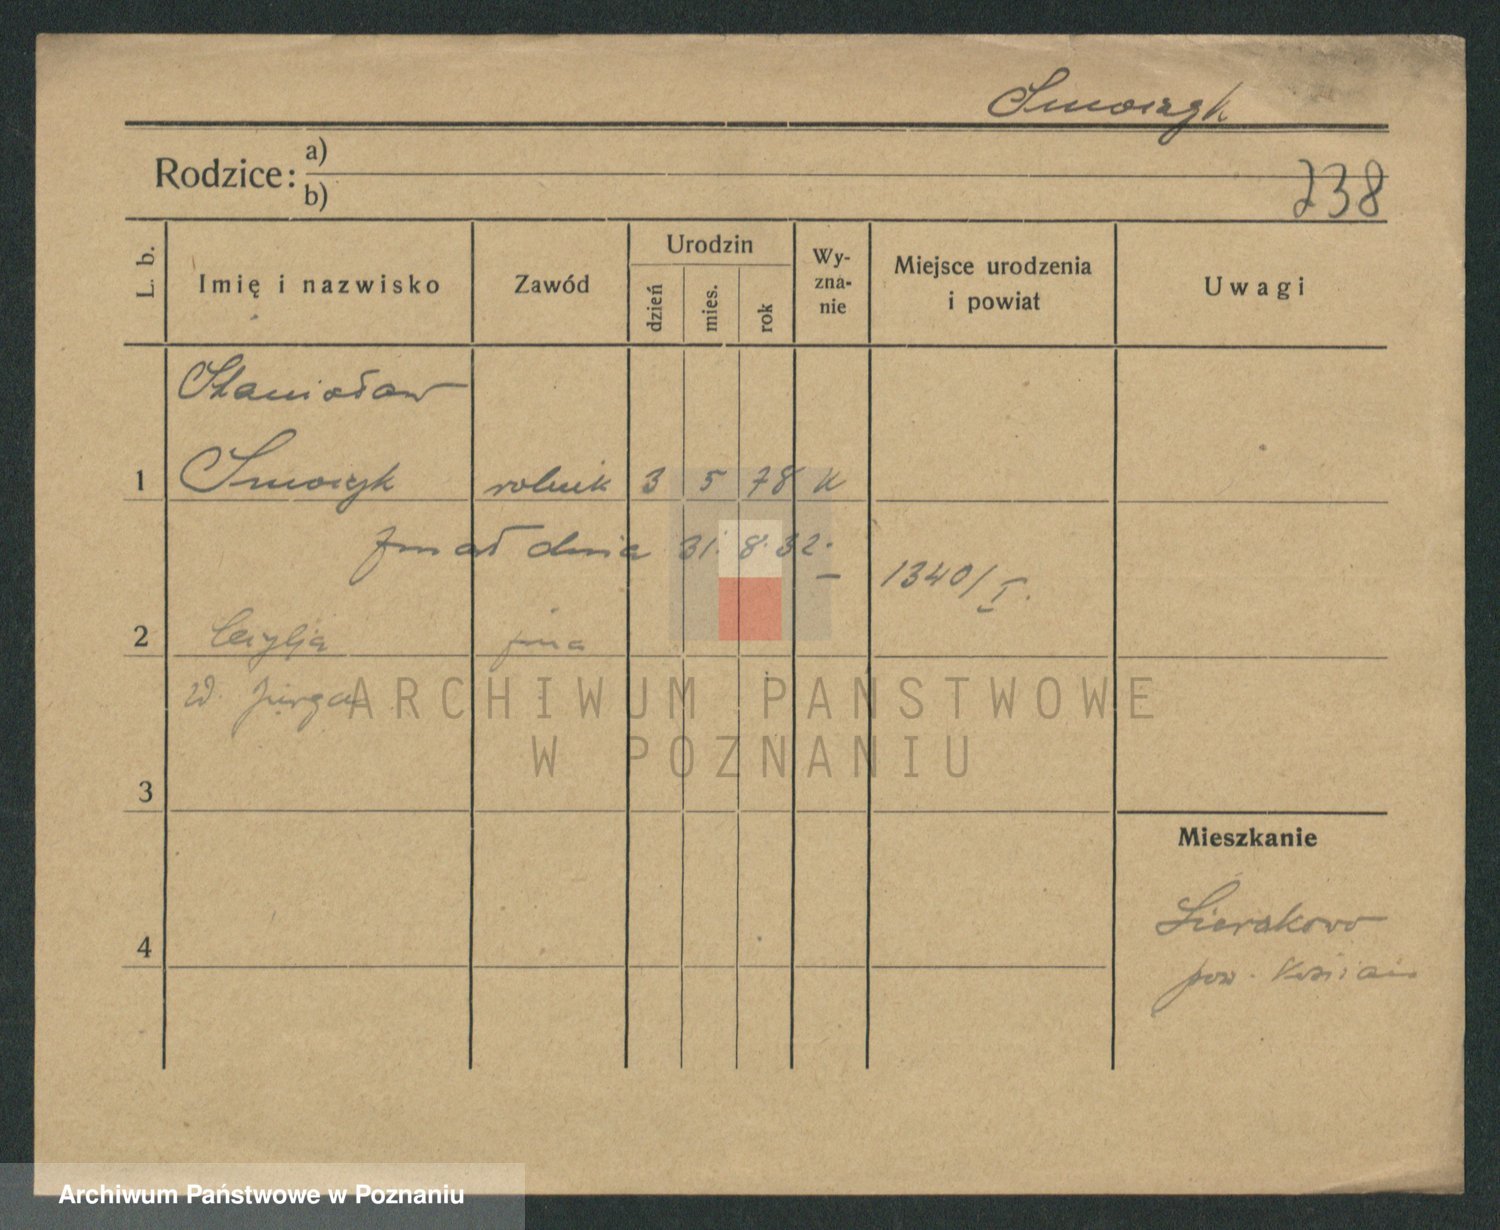 Smoczyk
Rodzice: a)
b)
738
L. b.
Imię i nazwisko
Zawód
Urodzin
dzień
mies.
rok
Wy-
zna-
nie
Miejsce urodzenia
i powiat
Uwagi
Stanisław
1 Smoczyk rolnik 3 5 78 k
zmarł dnia 31. 8. 32.
1340/I.
2 Cecylja żona
ARCHIWUM PAŃSTWOWE
W POZNANIU
3
Mieszkanie
Sierakowo
4
pow. Kościan
Archiwum Państwowe w Poznaniu